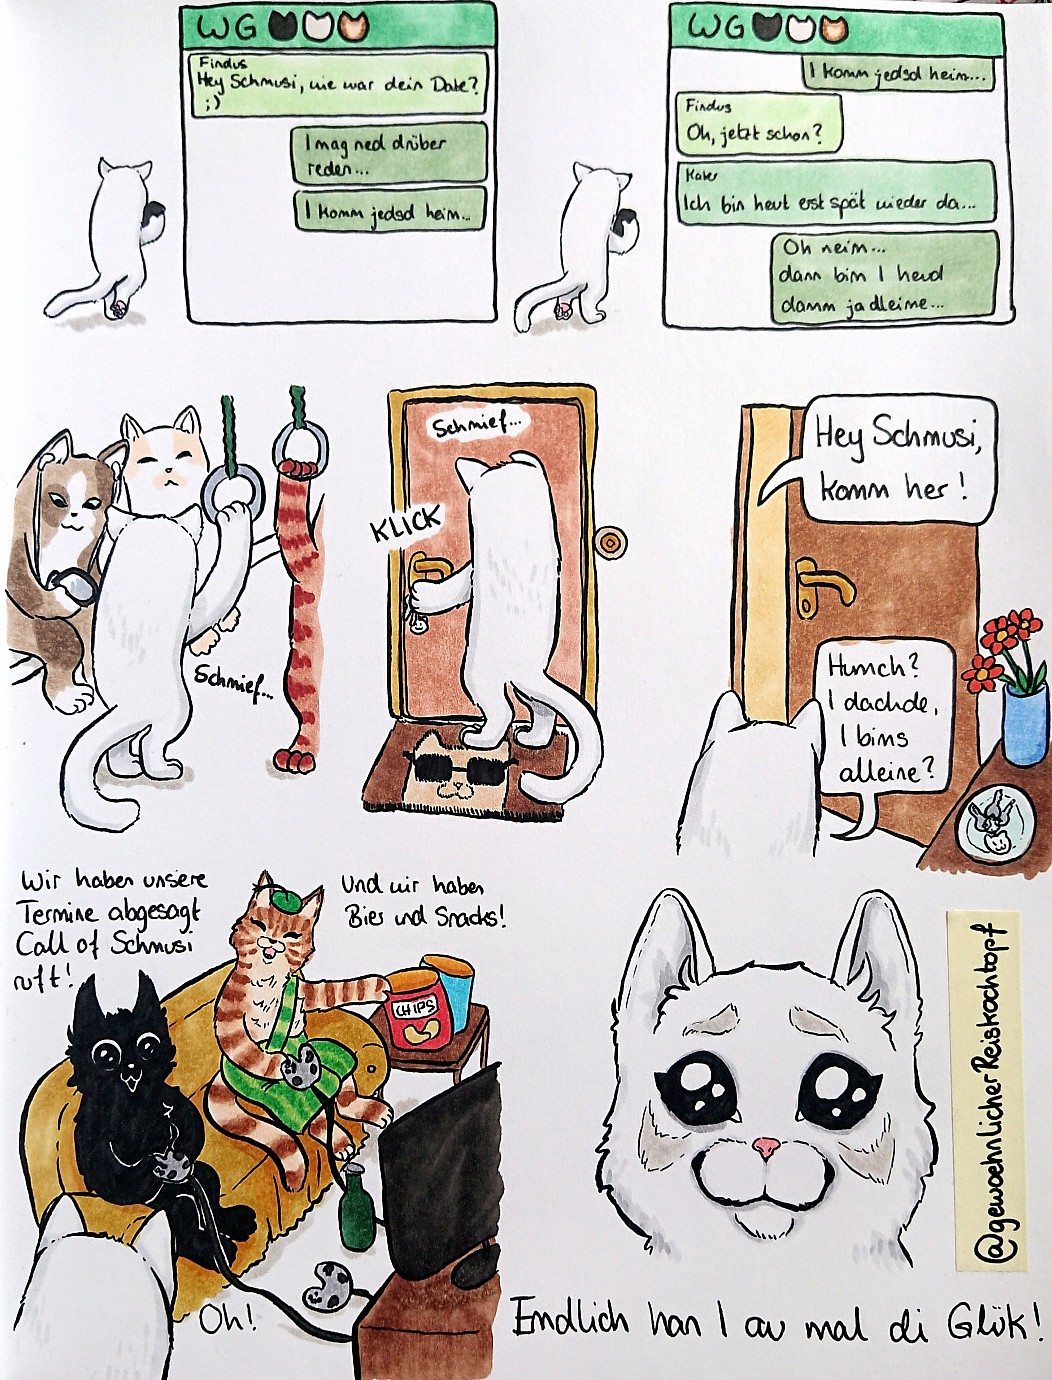 WG
Findus
Hey Schmusi, wie war dein Date?
;)
I mag ned drüber
reden...
I komm jedsd heim...
WG
I komm jedsd heim...
Findus
Oh, jetzt schon?
Kater
Ich bin heut erst spät wieder da...
Oh neim...
dann bim I heud
damm ja dleime...
Schmief...
Schmief...
KLICK
Hey Schmusi,
komm her!
Humch?
I dachde,
I bims
alleime?
Wir haben unsere
Termine abgesagt
Call of Schmusi
ruft!
Und wir haben
Bier und Snacks!
CHIPS
Oh!
@gewoehnlicherReiskochtopf
Emdlich han I au mal di Glük!